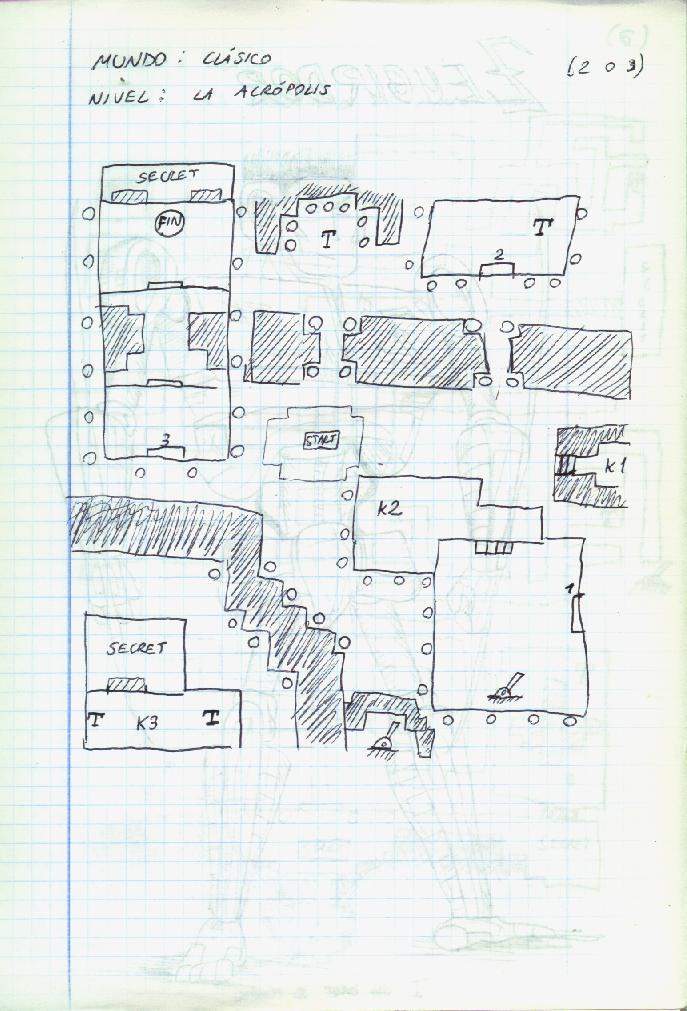 MUNDO: CLÁSICO (2 O 3)
NIVEL: LA ACRÓPOLIS
SECRET
FIN
T
T
2
3
START
K1
K2
1
SECRET
T K3 T